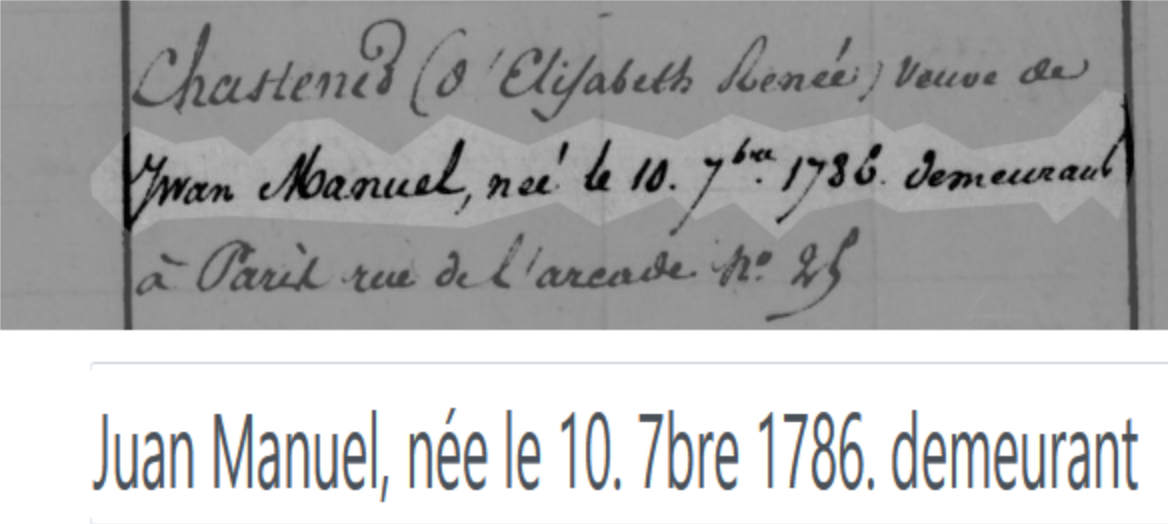 Chastened (d'Elisabeth Renée) veuve de
Jwan Manuel, neé le 10. 7bre. 1786. demeurant
à Paris rue de l'arcade No. 25
Juan Manuel, née le 10. 7bre 1786. demeurant